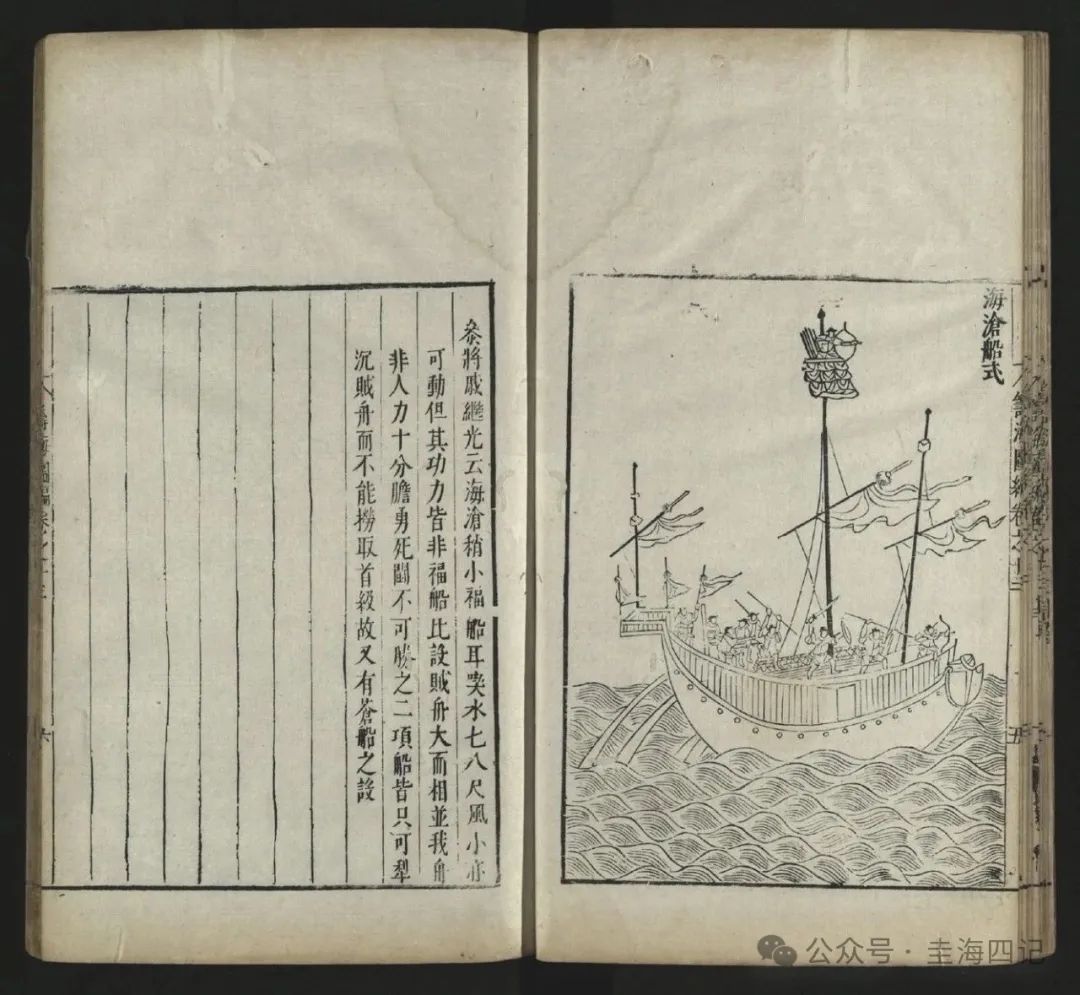 海滄船式
籌海圖編卷之十三
五
叅將戚繼光云海滄稍小福船耳喫水七八尺風小亦
可動但其功力皆非福船比設賊舟大而相並我舟
非人力十分膽勇死鬭不可勝之二項船皆只可犁
沉賊舟而不能撈取首級故又有蒼船之設
籌海圖編卷之十三
六
公众号·圭海四记